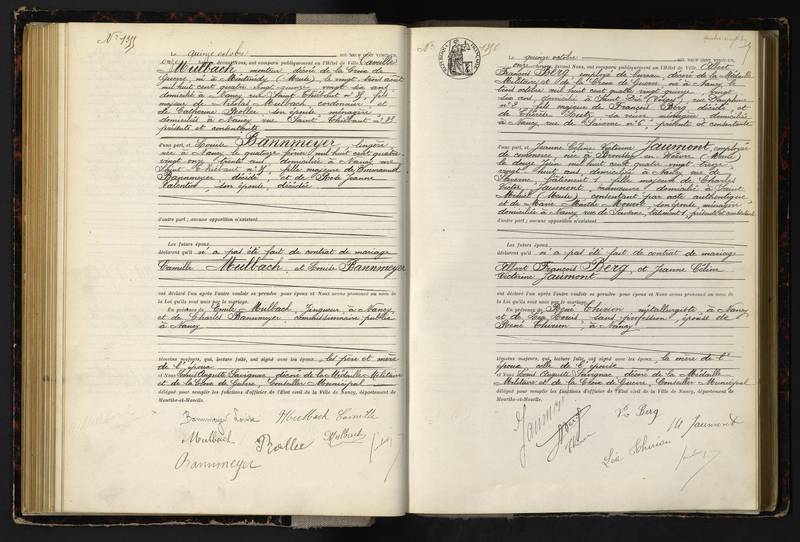 Le quinze octobre mil neuf cent vingt-un,
onze heures, devant Nous, ont comparu publiquement en l'Hôtel de Ville Camille
Mulbach, monteur, décoré de la Croix de
Guerre, né à
mil huit cent quatre vingt quinze, vingt six ans,
domicilié à Nancy rue Saint Thiébaut n° 38, fils
majeur de Nicolas Mulbach cordonnier, et
de Catherine Rollee son épouse, ménagère
domiciliés à Nancy rue Saint Thiébaut n° 38
présents et consentants
d'une part, et Louise Bannmeyer, lingère
née à Nancy le quatorze mil huit cent quatre
vingt onze, trente ans, domiciliée à Nancy rue
Saint Thiébaut n° 38, fille majeure de Emmanuel
Bannmeyer décédé et de Jeanne
Valentin, son épouse, décédée
d'autre part ; aucune opposition n'existant
Les futurs époux
déclarent qu'il n'a pas été fait de contrat de mariage
Camille Mulbach, et Louise Bannmeyer
ont déclaré l'un après l'autre vouloir se prendre pour époux et Nous avons prononcé au nom de
la Loi qu'ils sont unis par le mariage.
En présence de Emile Mulbach, Zingueur, à Nancy,
et de Charles Bannmeyer, commissionnaire public
à Nancy
témoins majeurs, qui, lecture faite, ont signé avec les époux, les père et mère
de l'époux
et Nous Louis Auguste Savignac, décoré de la Médaille Militaire
et de la Croix de Guerre, Conseiller Municipal
délégué pour remplir les fonctions d'officier de l'Etat civil de la Ville de Nancy, département de
Meurthe-et-Moselle.
Bannmeyer Louise Mulbach Camille
Mulbach Rollee Mulbach
Bannmeyer
Le quinze octobre mil neuf cent vingt-un,
onze heures, devant Nous, ont comparu publiquement en l'Hôtel de Ville Albert
François Berg, employé de bureau, décoré de la Médaille
Militaire et de la Croix de Guerre, né à Nancy le
mil huit cent quatre vingt quinze, vingt
six ans, domicilié à Saint Dié (Vosges), rue Dauphine
n° 2, fils majeur de François Berg décédé et
de Thérèse sa veuve, ménagère domiciliée
à Nancy rue de Saverne n° 6, présente et consentante
d'une part, et Jeanne Céline Victorine Jaumont, employée
de commerce, née à en Woëvre (Meuse)
le douze juin mil huit cent quatre vingt treize
vingt huit ans, domiciliée à Nancy rue de
Saverne, bâtiment 1, fille majeure de Charles
Victor Jaumont, manœuvre, domicilié à Saint
Mihiel (Meuse) consentant par acte authentique,
et de Marie Marthe son épouse, ménagère
domiciliée à Nancy rue de Saverne, bâtiment 1, présente et consentante
d'autre part ; aucune opposition n'existant
Les futurs époux
déclarent qu'il n'a pas été fait de contrat de mariage
Albert François Berg et Jeanne Céline
Victorine Jaumont
ont déclaré l'un après l'autre vouloir se prendre pour époux et Nous avons prononcé au nom de
la Loi qu'ils sont unis par le mariage.
En présence de René Thirion, métallurgiste, à Nancy
et de sans profession, épouse de
René Thirion, à Nancy
témoins majeurs, qui, lecture faite, ont signé avec les époux, la mère de l'
époux, celle de l'épouse
et Nous Louis Auguste Savignac, décoré de la Médaille
Militaire et de la Croix de Guerre, Conseiller Municipal
délégué pour remplir les fonctions d'officier de l'Etat civil de la Ville de Nancy, département de
Meurthe-et-Moselle.
Jaumont Berg Vve Berg
M Jaumont
Thirion